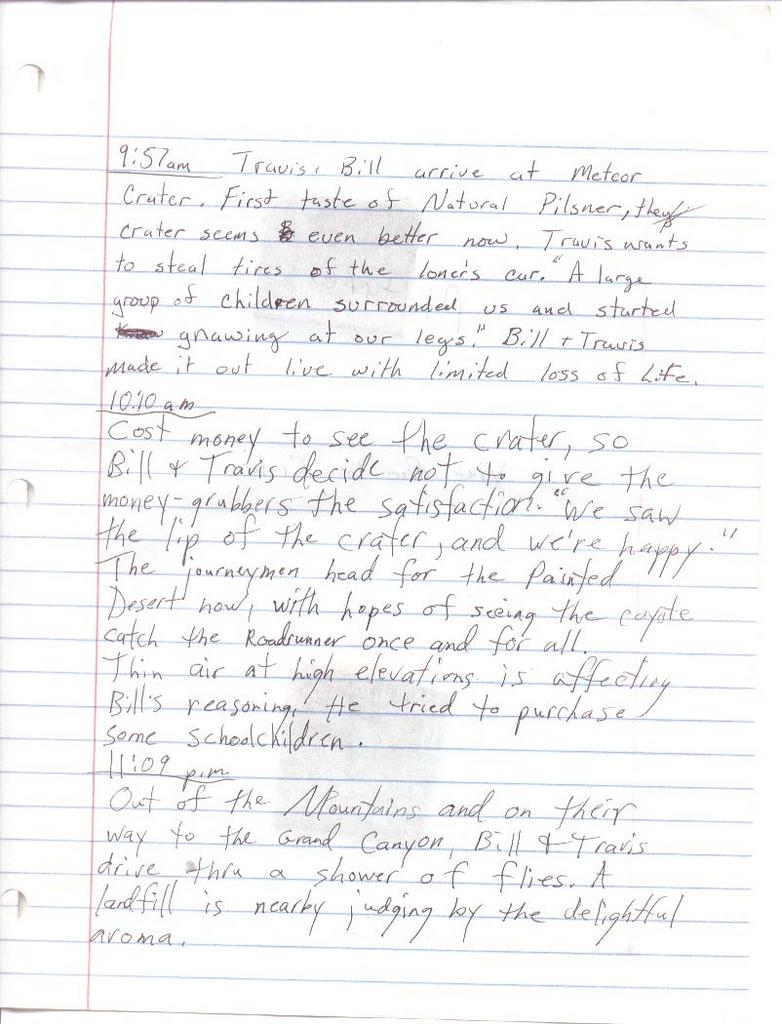 9:57am Travis, Bill arrive at Meteor
Crater. First taste of Natural Pilsner, the
crater seems even better now. Travis wants
to steal tires of the loner's car. "A large
group of children surrounded us and started
gnawing at our legs." Bill + Travis
made it out live with limited loss of Life.
10:10 am
Cost money to see the crater, so
Bill & Travis decide not to give the
money-grubbers the satisfaction. "We saw
the lip of the crater, and we're happy."
The journeymen head for the Painted
Desert now, with hopes of seeing the coyote
catch the Roadrunner once and for all.
Thin air at high elevations is affecting
Bill's reasoning. He tried to purchase
some schoolchildren.
11:09 p.m.
Out of the Mountains and on their
way to the Grand Canyon, Bill & Travis
drive thru a shower of flies. A
landfill is nearby judging by the delightful
aroma.